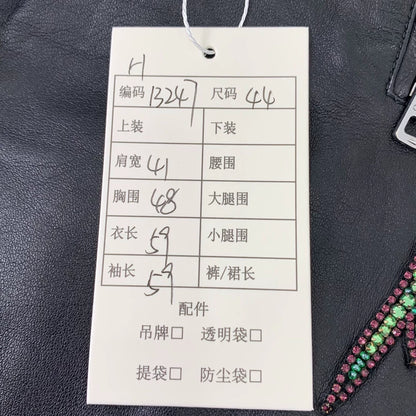 H
编码 13247 尺码 44
上装 下装
肩宽 41 腰围
胸围 48 大腿围
衣长 59 小腿围
袖长 59 裤/裙长
配件
吊牌□ 透明袋□
提袋□ 防尘袋□